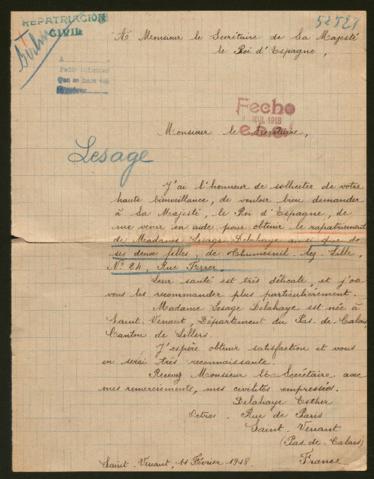 REPATRIACION
CIVIL
52521
A Monsieur le Secrétaire de Sa Majesté
le Roi d'Espagne,
Fecho
1918
Monsieur le Secrétaire,
Lesage
J'ai l'honneur de solliciter de votre
haute bienveillance, de vouloir bien demander
à Sa Majesté, le Roi d'Espagne, de
me venir en aide pour obtenir le rapatriement
de Madame Lesage Delahaye ainsi que de
ses deux filles, de lez Lille,
N° 24, Rue Ferrer.
Leur santé est très délicate, et j'ose
vous les recommander plus particulièrement.
Madame Lesage Delahaye est née à
Saint-Venant, Département du Pas-de-Calais,
Canton de Lillers.
J'espère obtenir satisfaction et vous
en serai très reconnaissante.
Recevez Monsieur le Secrétaire avec
mes remerciements, mes civilités empressées.
Delahaye Esther
Octroi, Rue de Paris
Saint-Venant
(Pas-de-Calais)
Saint-Venant, 11 Février 1918 France